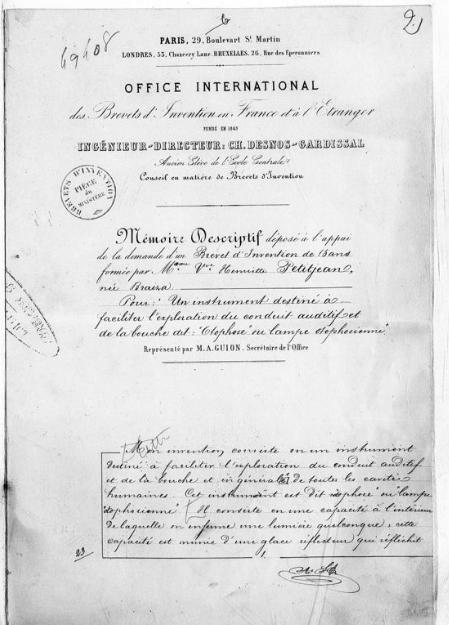 6
2
69408
PARIS, 29, Boulevart St Martin
LONDRES, 53, Chancery Lane. BRUXELLES, 26, Rue des Eperonniers
OFFICE INTERNATIONAL
des Brevets d'Invention en France et à l'Étranger
FONDÉ EN 1849
INGÉNIEUR-DIRECTEUR: CH. DESNOS-GARDISSAL
Ancien Elève de l'Ecole Centrale
Conseil en matière de Brevets d'Invention
BREVETS D'INVENTION
PIÈCE
du
MINISTÈRE
Mémoire Descriptif déposé à l'appui
de la demande d'un Brevet d'Invention de 15 ans
formée par Mme Vve Henriette Petitjean,
née
Pour: Un instrument destiné à
faciliter l'exploration du conduit auditif et
de la bouche dit: "Otophore" ou lampe otophorienne
Représenté par M. A. GUION. Secrétaire de l'Office
Mon invention consiste en un instrument
destiné à faciliter l'exploration du conduit auditif
et de la bouche et en général de toutes les cavités
humaines. Cet instrument est dit otophore ou "lampe
otophorienne" Il consiste en une capacité à l'intérieur
de laquelle on enferme une lumière quelconque; cette
capacité est munie d'une glace réflecteur qui réfléchit
1.